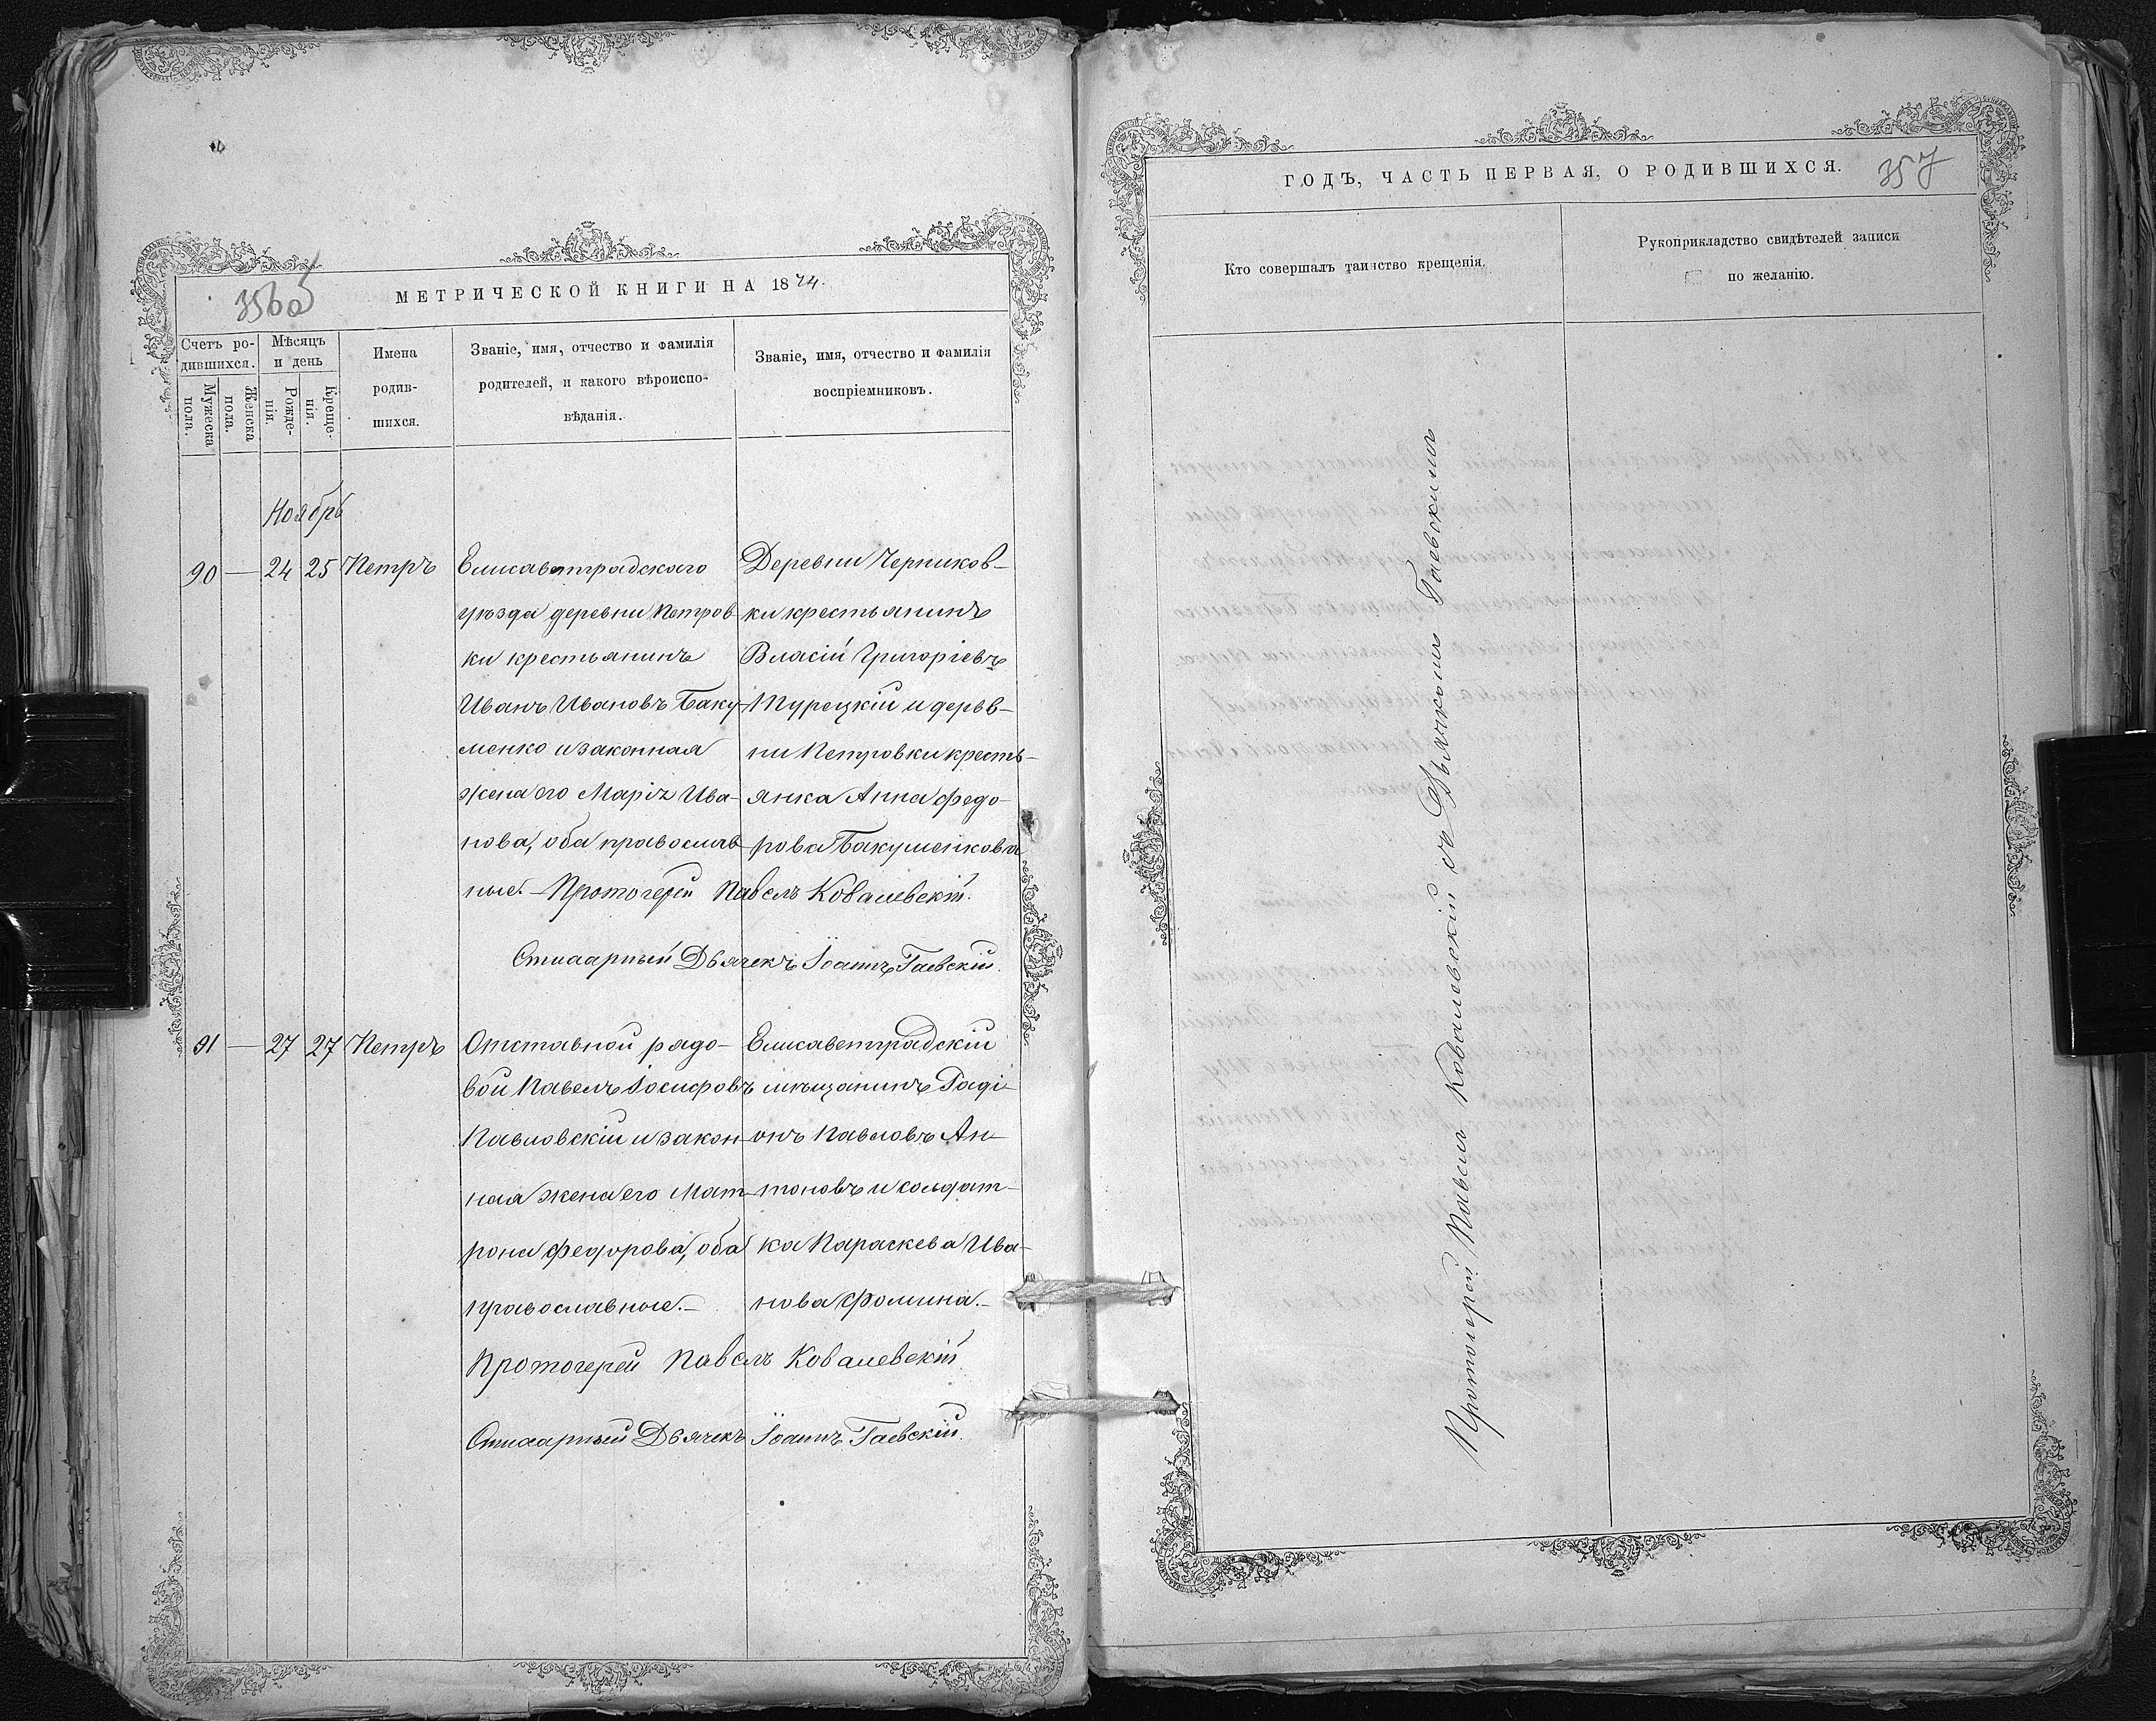 356об
МЕТРИЧЕСКОЙ КНИГИ НА 1874.
Счетъ ро-
дившихся.
Мужеска
пола.
Женска
пола.
Мѣсяцъ
и день
Рожде-
нія.
Креще-
нія.
Имена
родив-
шихся.
Званіе, имя, отчество и фамилія
родителей, и какого вѣроиспо-
вѣданія.
Званіе, имя, отчество и фамилія
воспріемниковъ.
Ноябрь
90 — 24 25 Петръ
Елисаветградскаго
уѣзда деревни Петров-
ки крестьянинъ
Иванъ Ивановъ Баку-
менко и законная
жена его Марія Ива-
нова, оба православ-
ные.—
Деревни Черников-
ки крестьянинъ
Власій Григоріевъ
Турецкій и дерев-
ни Петровки кресть-
янка Анна Федо-
рова Бакуменкова
Протоіерей Павелъ Ковалевскій.
Дьячекъ Іоаннъ Гаевскій.
91 — 27 27 Петръ
Отставной рядо-
вой Павелъ Іосифовъ
Павловскій и закон-
ная жена его Мат-
рона Федорова, оба
православные.—
Елисаветградскій
мѣщанинъ Родi-
онъ Павловъ Ан-
тоновъ и солдат-
ка Параскева Ива-
нова Фомина.—
Протоіерей Павелъ Ковалевскій
Дьячекъ Іоаннъ Гаевскій.
ГОДЪ, ЧАСТЬ ПЕРВАЯ, О РОДИВШИХСЯ.
357
Кто совершалъ таинство крещенія.
Рукоприкладство свидѣтелей записи
по желанію.
Протоіерей Павелъ Ковалевскій съ Дьячкомъ Гаевскимъ